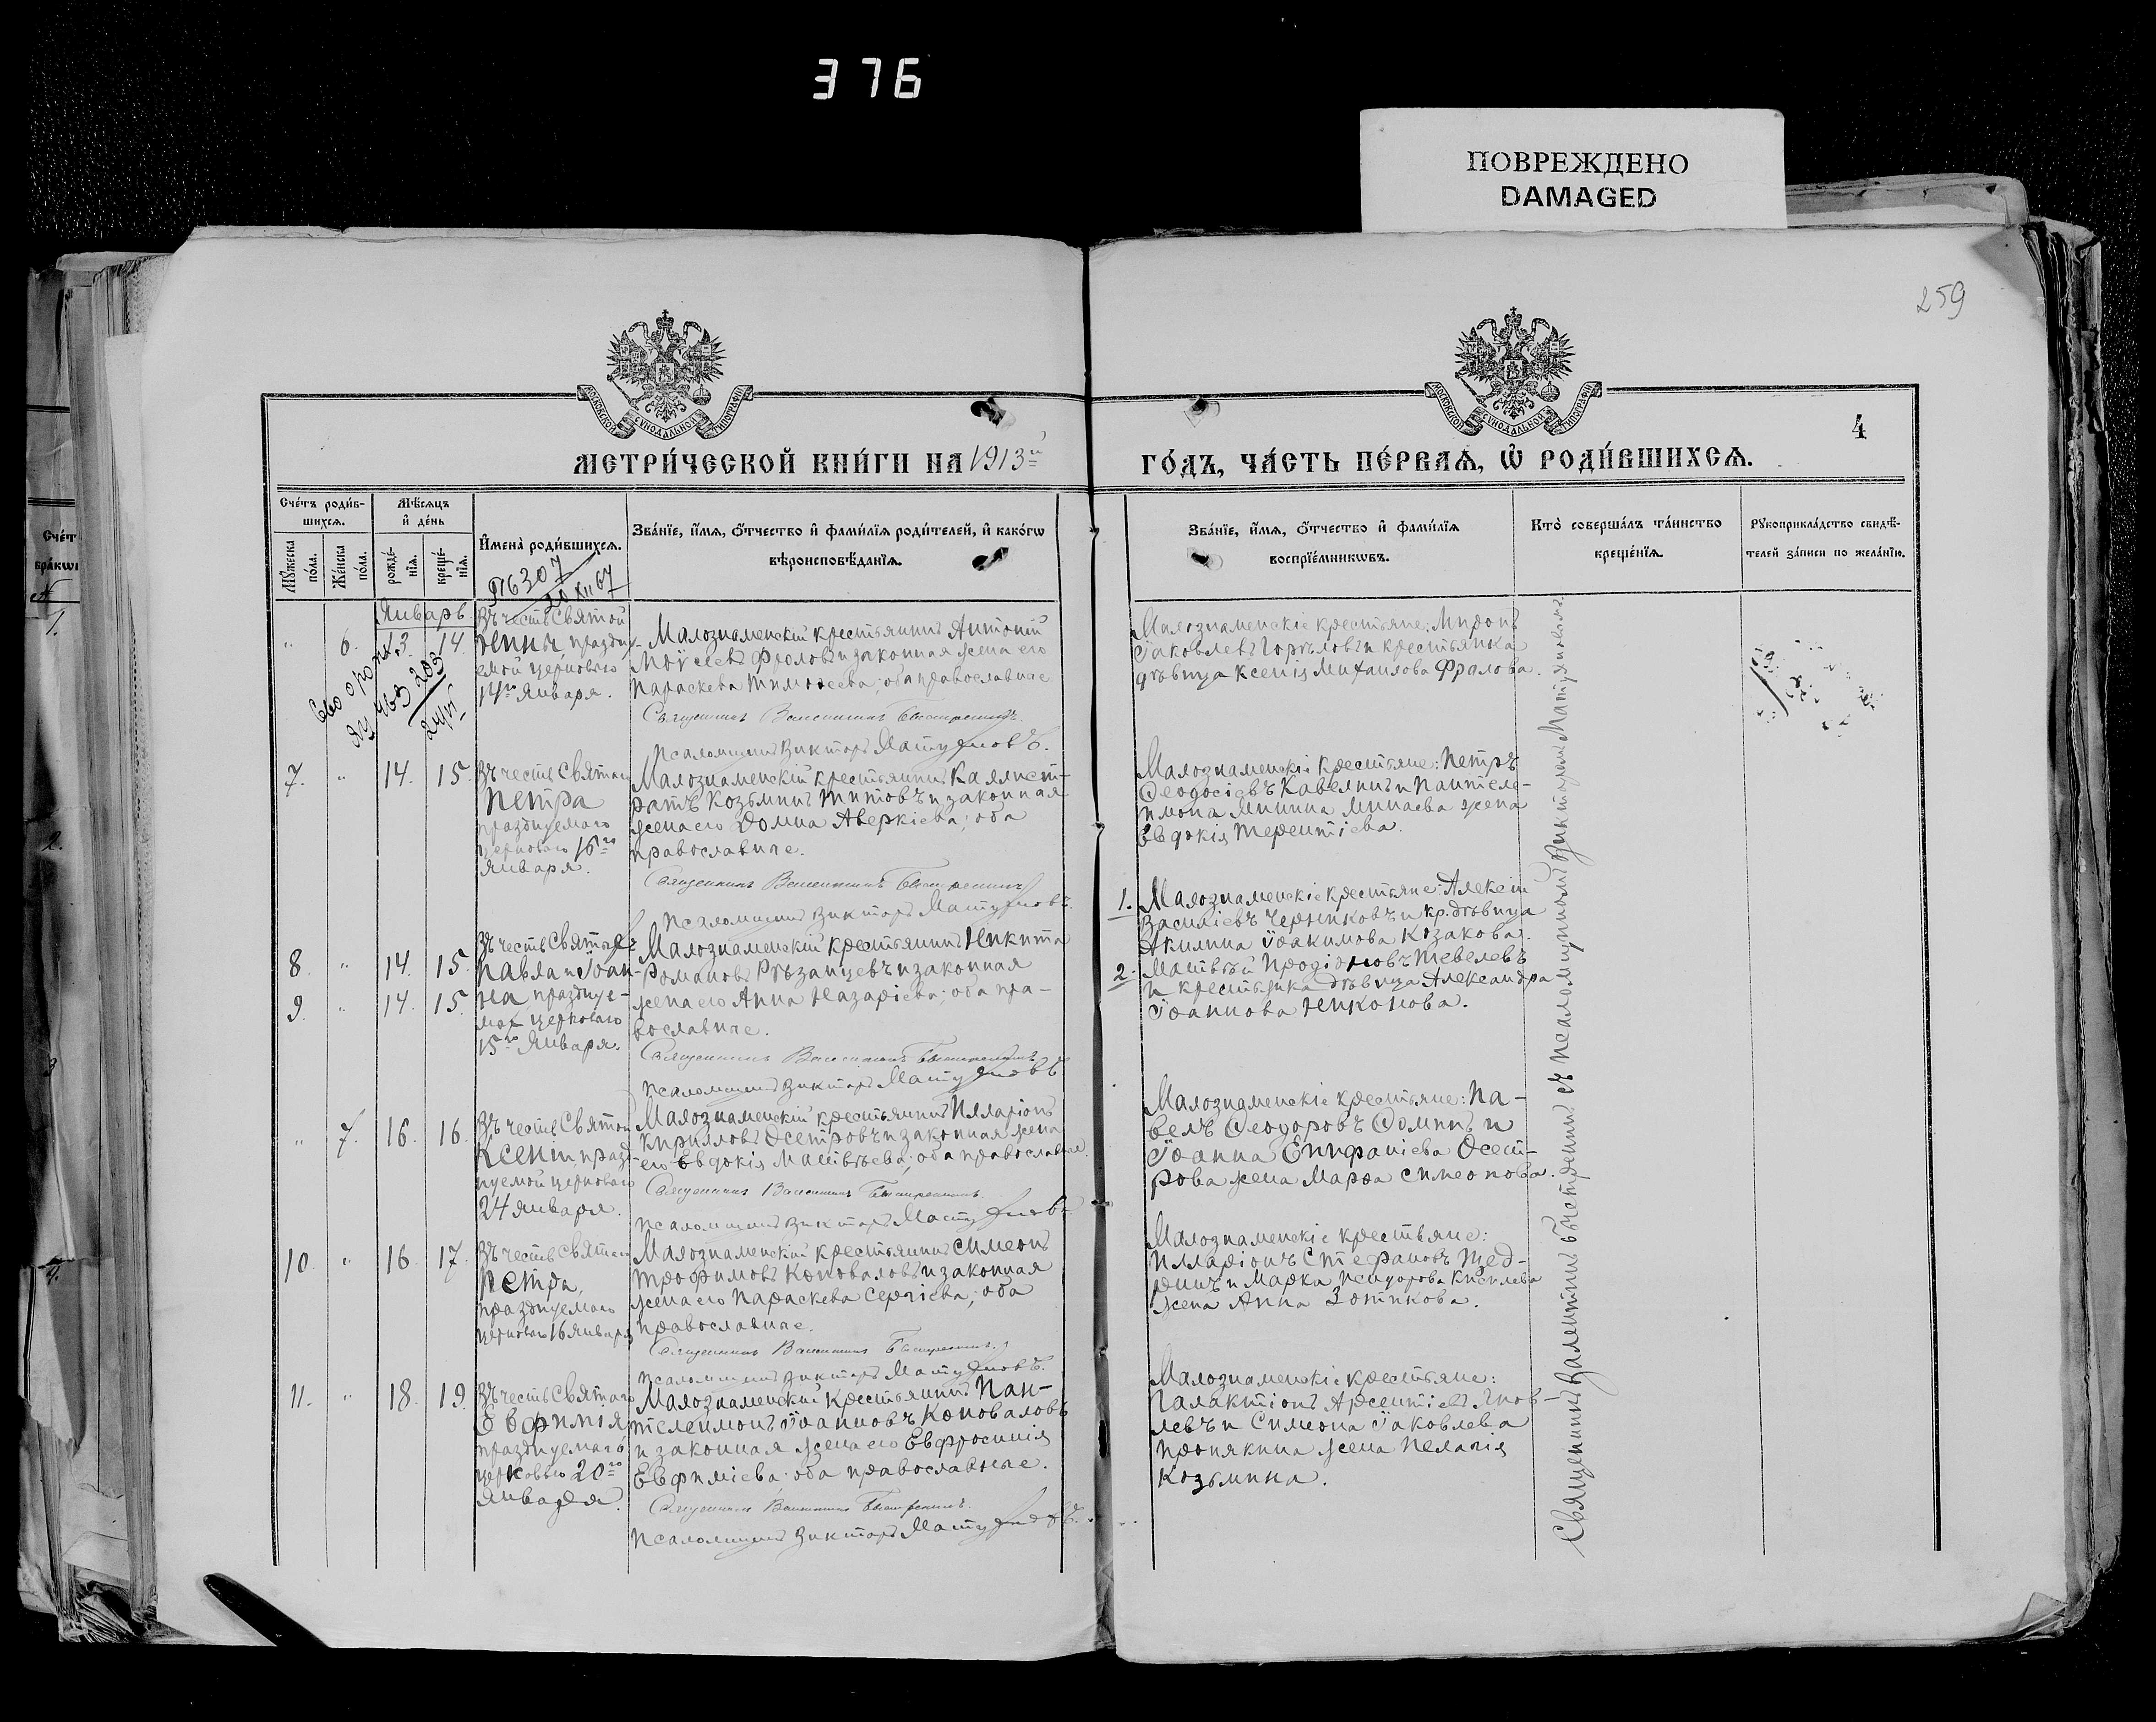 376
ПОВРЕЖДЕНО
DAMAGED
259
МОСКОВСКОЙ СѴНОДАЛЬНОЙ ТИПОГРАФІИ
МОСКОВСКОЙ СѴНОДАЛЬНОЙ ТИПОГРАФІИ
4
МЕТРИ́ЧЕСКОЙ КНИ́ГИ НА 1913й
ГО́ДЪ, ЧА́СТЬ ПЕ́РВАѦ, Ѡ҆ РОДИ́ВШИХСѦ.
Сче́тъ роди́в-
шихсѧ.
Мꙋ́жеска по́ла.
Же́нска по́ла.
Мѣ́сѧцъ
и҆ де́нь
рожде́-
нїѧ.
креще́-
нїѧ.
И҆мена̀ роди́вшихсѧ.
Зва́нїе, и҆́мѧ, ѻ҆́тчество и҆ фами́лїѧ роди́телей, и҆ како́гѡ
вѣроисповѣ́данїѧ.
Зва́нїе, и҆́мѧ, ѻ҆́тчество и҆ фами́лїѧ
воспрїе́мникѡвъ.
Кто̀ соверша́лъ та́инство
креще́нїѧ.
Рꙋкоприкла́дство свидѣ́-
телей за́писи по жела́нїю.
П6307
20 XII 67
Январь
" 6. 13. 14.
Въ честь Святой
Нины праздну-
емой церковью
14го Января.
Малознаменскій крестьянинъ Антоній
Моѵсеевъ Фроловъ и законная жена его
Параскева Тимоѳеева; оба православные
Священникъ Валентинъ Быстреминъ
Псаломщикъ Викторъ Матуяновъ.
Малознаменскіе крестьяне: Миронъ
Іаковлевъ Горѣловъ и крестьянка
дѣвица Ксенія Михаилова Фролова.
7. " 14. 15.
Въ честь Святаго
Петра
празднуемаго
церковью 16го
Января.
Малознаменскій крестьянинъ Каллист-
ратъ Козьминъ Титовъ и законная
жена его Домна Аверкіева; оба
православные.
Священникъ Валентинъ
Псаломщикъ Викторъ Матуяновъ.
Малознаменскіе крестьяне: Петръ
Ѳеодосіевъ Кавелинъ и Пантеле-
имона Минина Минаева жена
Евдокія Терентіева.
8. " 14. 15.
9. " 14. 15.
Въ честь Святыхъ
Павла и Іоан-
на празднуе-
мых церковью
15го Января.
Малознаменскій крестьянинъ Никита
Романовъ Рѣзанцевъ и законная
жена его Анна Назаріева; оба пра-
вославные.
Священникъ Валентинъ
Псаломщикъ Викторъ Матуяновъ
1. Малознаменскіе крестьяне: Алексій
Василіевъ Черниковъ и кр. дѣвица
Акилина Іоакимова Козакова.
2. Матвѣй Продіоновъ Тевелевъ
и крестьянка дѣвица Александра
Іоаннова Никонова.
" 7. 16. 16.
Въ честь Святой
Ксеніи празд-
нуемой церковью
24 Января.
Малознаменскій крестьянинъ Илларіонъ
Кирилловъ Осетровъ и законная жена
его Евдокія Матвѣева; оба православные.
Священникъ Валентинъ
Псаломщикъ Викторъ Матуяновъ
Малознаменскіе крестьяне: Па-
велъ Ѳеодоровъ Ѳоминъ и
Іоанна Епифаніева Осет-
рова жена Марѳа Симеонова.
10. " 16. 17.
Въ честь Святаго
Петра,
празднуемаго
церковью 16 Января
Малознаменскій крестьянинъ Симеонъ
Трофимовъ Коноваловъ и законная
жена его Параскева Сергіева; оба
православные.
Священникъ Валентинъ
Псаломщикъ Викторъ Матуяновъ.
Малознаменскіе крестьяне:
Илларіонъ Стефановъ
и Марка Исидорова Киселева
жена Анна Зотикова.
11. " 18. 19.
Въ честь Святаго
Евфимія
празднуемаго
церковью 20го
Января.
Малознаменскій крестьянинъ Пан-
телеимонъ Іоанновъ Коноваловъ
и законная жена его Евфросинія
Евфиміева; оба православные.
Священникъ Валентинъ
Псаломщикъ Викторъ Матуяновъ.
Малознаменскіе крестьяне:
Галактіонъ Арсентіевъ Яков-
левъ и Симеона Іаковлева
Пронякина жена Пелагія
Козьмина.
Священникъ Валентинъ съ псаломщикомъ Викторомъ Матуяновымъ.